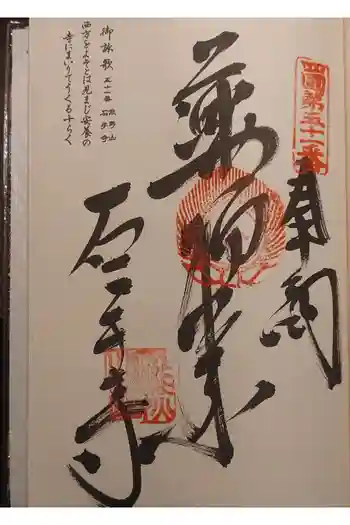 四國第五十一番
奉納
薬師如来
石手寺
御詠歌 五十一番 熊野山 石手寺
西方をよそとは見まじ安養の
寺にまいりてうくる十らく